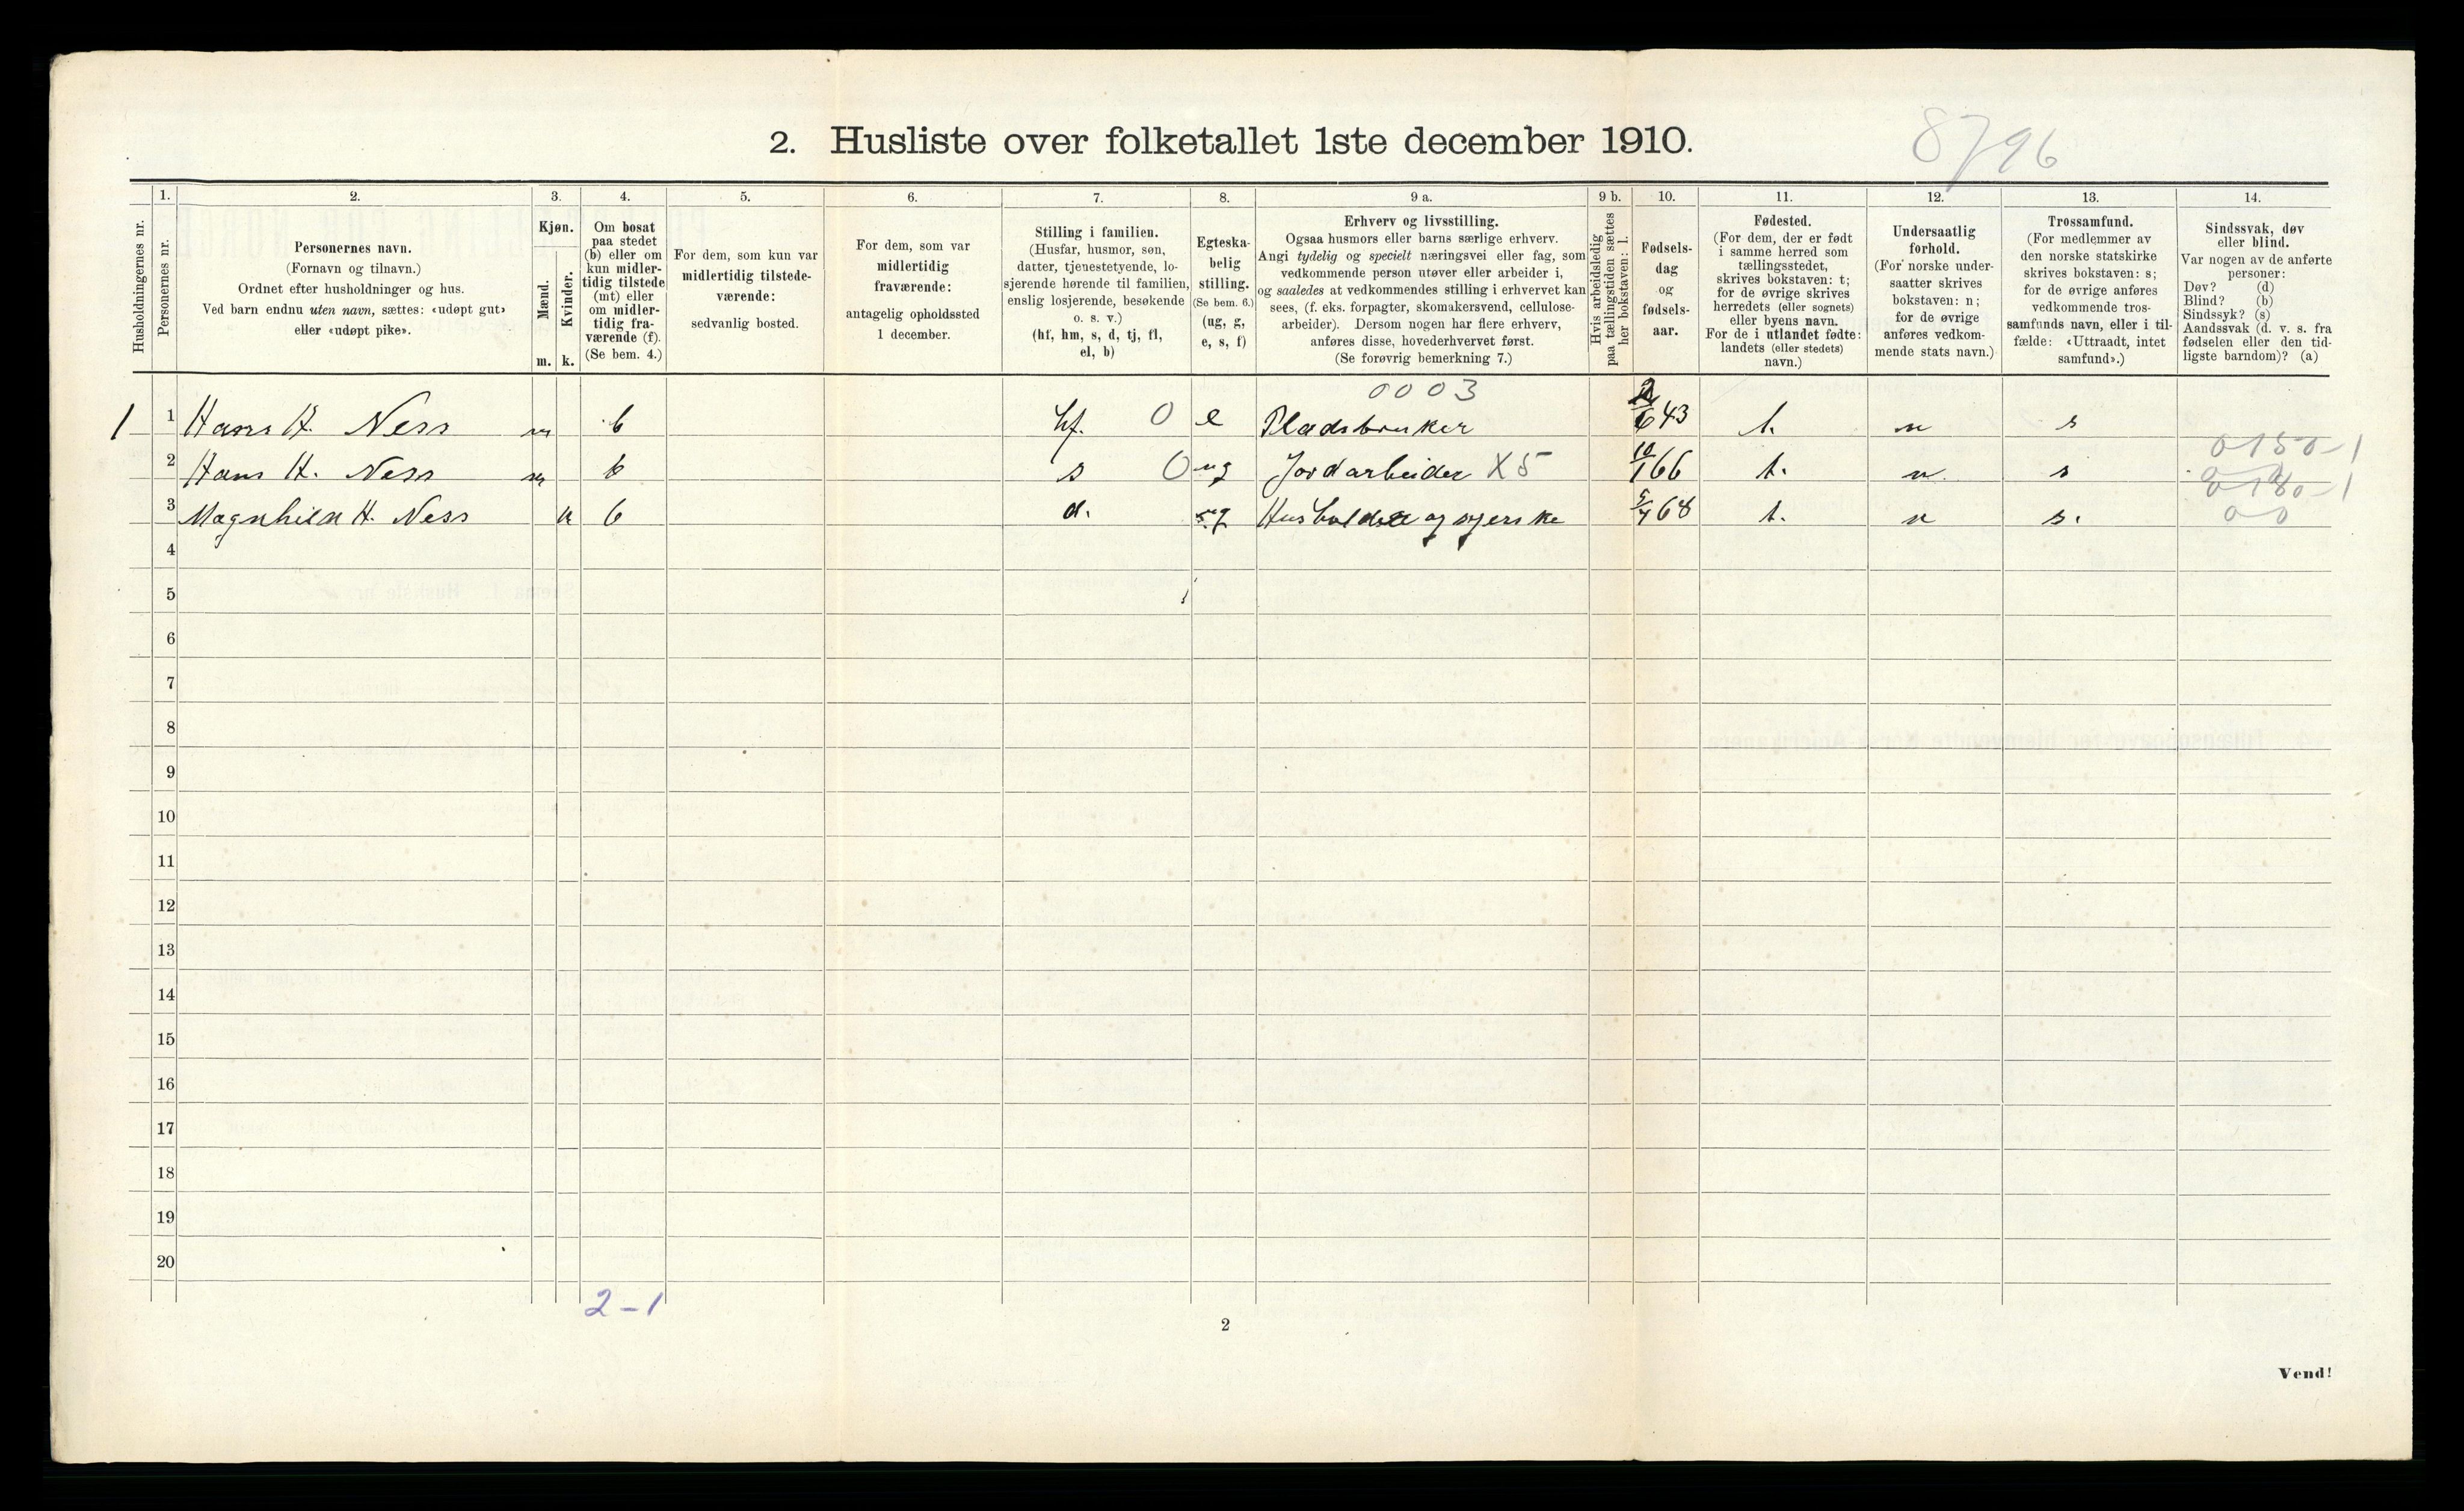 2. Husliste over folketallet 1ste december 1910.
8796
1. 2. 3. 4. 5. 6. 7. 8. 9 a. 9 b. 10. 11. 12. 13. 14.
Husholdningernes nr.
Personernes nr.
Personernes navn.
(Fornavn og tilnavn.)
Ordnet efter husholdninger og hus.
Ved barn endnu uten navn, sættes: «udøpt gut»
eller «udøpt pike».
Kjøn.
Mænd.
Kvinder.
m. k.
Om bosat
paa stedet
(b) eller om
kun midler-
tidig tilstede
(mt) eller
om midler-
tidig fra-
værende (f).
(Se bem. 4.)
For dem, som kun var
midlertidig tilstede-
værende:
sedvanlig bosted.
For dem, som var
midlertidig
fraværende:
antagelig opholdssted
1 december.
Stilling i familien.
(Husfar, husmor, søn,
datter, tjenestetyende, lo-
sjerende hørende til familien,
enslig losjerende, besøkende
o. s. v.)
(hf, hm, s, d, tj, fl,
el, b)
Egteska-
belig
stilling.
(Se bem. 6.)
(ug, g,
e, s, f)
Erhverv og livsstilling.
Ogsaa husmors eller barns særlige erhverv.
Angi tydelig og specielt næringsvei eller fag, som
vedkommende person utøver eller arbeider i,
og saaledes at vedkommendes stilling i erhvervet kan
sees, (f. eks. forpagter, skomakersvend, cellulose-
arbeider). Dersom nogen har flere erhverv,
anføres disse, hovederhvervet først.
(Se forøvrig bemerkning 7.)
Hvis arbeidsledig
paa tællingstiden sættes
her bokstaven: l.
Fødsels-
dag
og
fødsels-
aar.
Fødested.
(For dem, der er født
i samme herred som
tællingsstedet,
skrives bokstaven: t;
for de øvrige skrives
herredets (eller sognets)
eller byens navn.
For de i utlandet fødte:
landets (eller stedets)
navn.)
Undersaatlig
forhold.
(For norske under-
saatter skrives
bokstaven: n;
for de øvrige
anføres vedkom-
mende stats navn.)
Trossamfund.
(For medlemmer av
den norske statskirke
skrives bokstaven: s;
for de øvrige anføres
vedkommende tros-
samfunds navn, eller i til-
fælde: «Uttraadt, intet
samfund».)
Sindssvak, døv
eller blind.
Var nogen av de anførte
personer:
Døv? (d)
Blind? (b)
Sindssyk? (s)
Aandssvak (d. v. s. fra
fødselen eller den tid-
ligste barndom)? (a)
0003
1 1 Hans H. Ness m b hf. 0 e Pladsbruker /6 43 t. n s
0150-1
2 Hans H. Ness m b s 0 ug Jordarbeider X5 10/1 66 t. n. s
0180-1
3 Magnhild H. Ness k b d. ug og syerske 5/4 68 t. n s.
0 0
4
5
6
7
8
9
10
11
12
13
14
15
16
17
18
19
20
2-1
2
Vend!